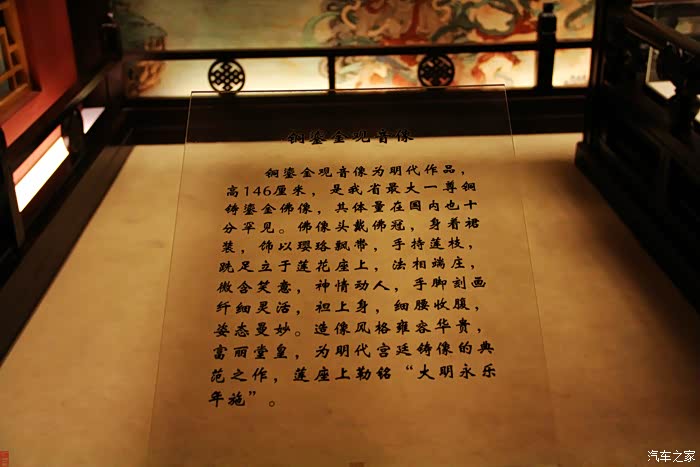 铜鎏金观音像
铜鎏金观音像为明代作品，
高146厘米，是我省最大一尊铜
铸鎏金佛像，其体量在国内也十
分罕见。佛像头戴佛冠，身着裙
装，饰以璎珞飘带，手持莲枝，
跣足立于莲花座上，法相端庄，
微含笑意，神情动人，手脚刻画
纤细灵活，袒上身，细腰收腹，
姿态曼妙。造像风格雍容华贵，
富丽堂皇，为明代宫廷铸像的典
范之作，莲座上勒铭“大明永乐
年施”。
汽车之家